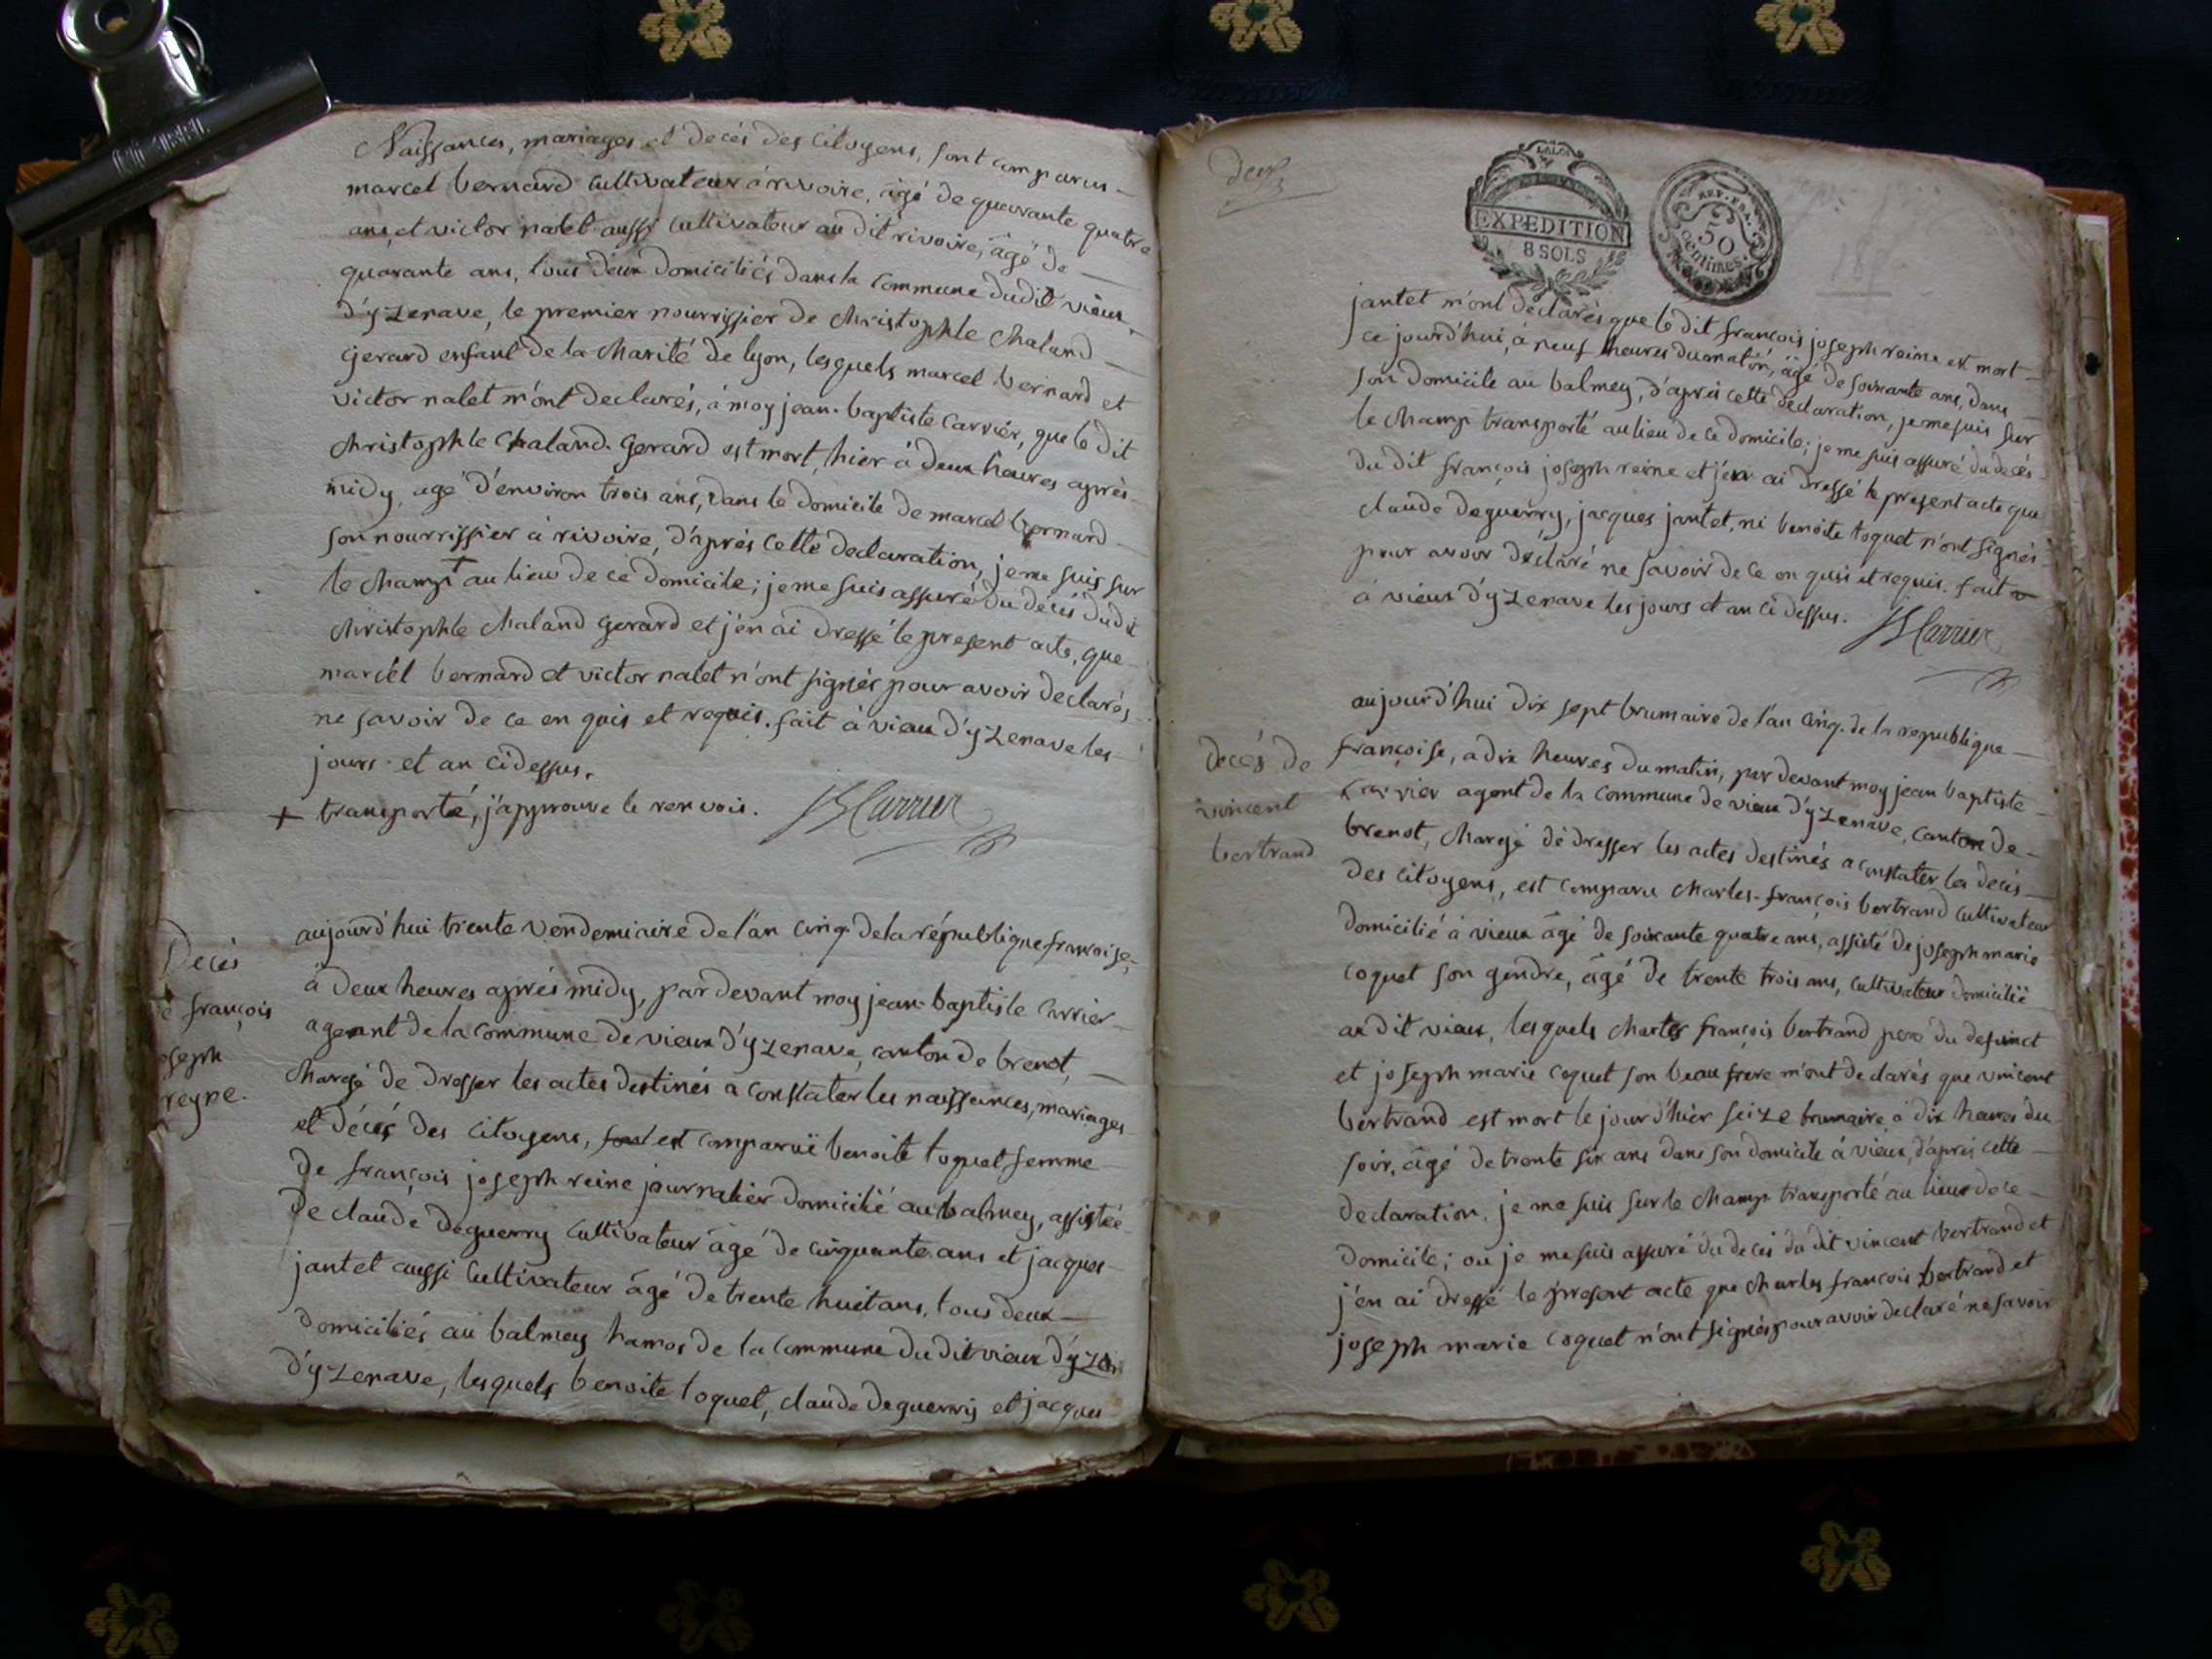 Naissances, mariages et deces des Citoyens, sont comparus
marcel bernard cultivateur à rivoire, âgé de quarante quatre
ans, et victor nalet aussi cultivateur au dit rivoire, âgé de
quarante ans, tous deux domiciliés dans la commune dudit vieux
d'yzenave, le premier nourrissier de christophle chaland
gerard enfant de la charité de lyon, lesquels marcel bernard et
victor nalet m'ont declarés, à moy jean-baptiste carrier, que le dit
christophle chaland gerard est mort, hier à deux heures après
midy, age d'environ trois ans, dans le domicile de marcel bernard
son nourrissier à rivoire, d'après cette declaration, je me suis sur
le champ + au lieu de ce domicile; je me suis assuré du décès dudit
christophle chaland gerard et j'en ai dressé le present acte, que
marcel bernard et victor nalet n'ont signés pour avoir declarés
ne savoir de ce en quis et requis. fait à vieux d'yzenave les
jours et an cidessus.
+ transporté, j'approuve le renvois. JB Carrier
Decès
de françois
joseph
reyne.
aujourd'hui trente vendemiaire de l'an cinq de la république françoise,
à deux heures après midy, par devant moy jean-baptiste carrier
agent de la commune de vieux d'yzenave, canton de brenot,
chargé de dresser les actes destinés a constater les naissances, mariages
et décès des citoyens, sont est comparuë benoite toquet femme
de françois joseph reine journalier domicilié au balmey, assistée
de claude deguerry cultivateur âgé de cinquante ans et jacques
jantet aussi cultivateur âgé de trente huit ans, tous deux
domiciliés au balmey hamos de la commune du dit vieux d'yzen
d'yzenave, lesquels benoite toquet, claude deguerry et jacques
deux
LA LOI
EXPEDITION
8 SOLS
REP. FRA.
50
centimes.
jantet m'ont déclarés que le dit françois joseph reine est mort
ce jourd'hui, à neuf heures du matin, âgé de soixante ans, dans
son domicile au balmey, d'après cette declaration, je me suis sur
le champ transporté au lieu de ce domicile; je me suis assuré du decès
du dit françois joseph reine et j'en ai dressé le present acte que
claude deguerry, jacques jantet, ni benoite toquet n'ont signés
pour avoir déclaré ne savoir de ce en quis et requis. fait
à vieux d'yzenave les jours et an ci dessus. JB Carrier
decès de
vincent
bertrand
aujourd'hui dix sept brumaire de l'an cinq. de la republique
françoise, a dix heures du matin, par devant moy jean baptiste
carrier agent de la commune de vieux d'yzenave, canton de
brenot, chargé de dresser les actes destinés a constater les decès
des citoyens, est comparu charles-françois bertrand cultivateur
domicilié à vieux âgé de soixante quatre ans, assisté de joseph marie
coquet son gendre, âgé de trente trois ans, cultivateur domicilié
au dit vieux, lesquels charles françois bertrand pere du defunct
et joseph marie coquet son beau frere m'ont declarés que vincent
bertrand est mort le jour d'hier seize brumaire à dix heures du
soir, âgé de trente six ans dans son domicile à vieux, d'après cette
declaration, je me suis sur le champ transporté au lieu de ce
domicile; ou je me suis assuré du deces du dit vincent bertrand et
j'en ai dressé le present acte que charles françois bertrand et
joseph marie coquet n'ont signés pour avoir declaré ne savoir